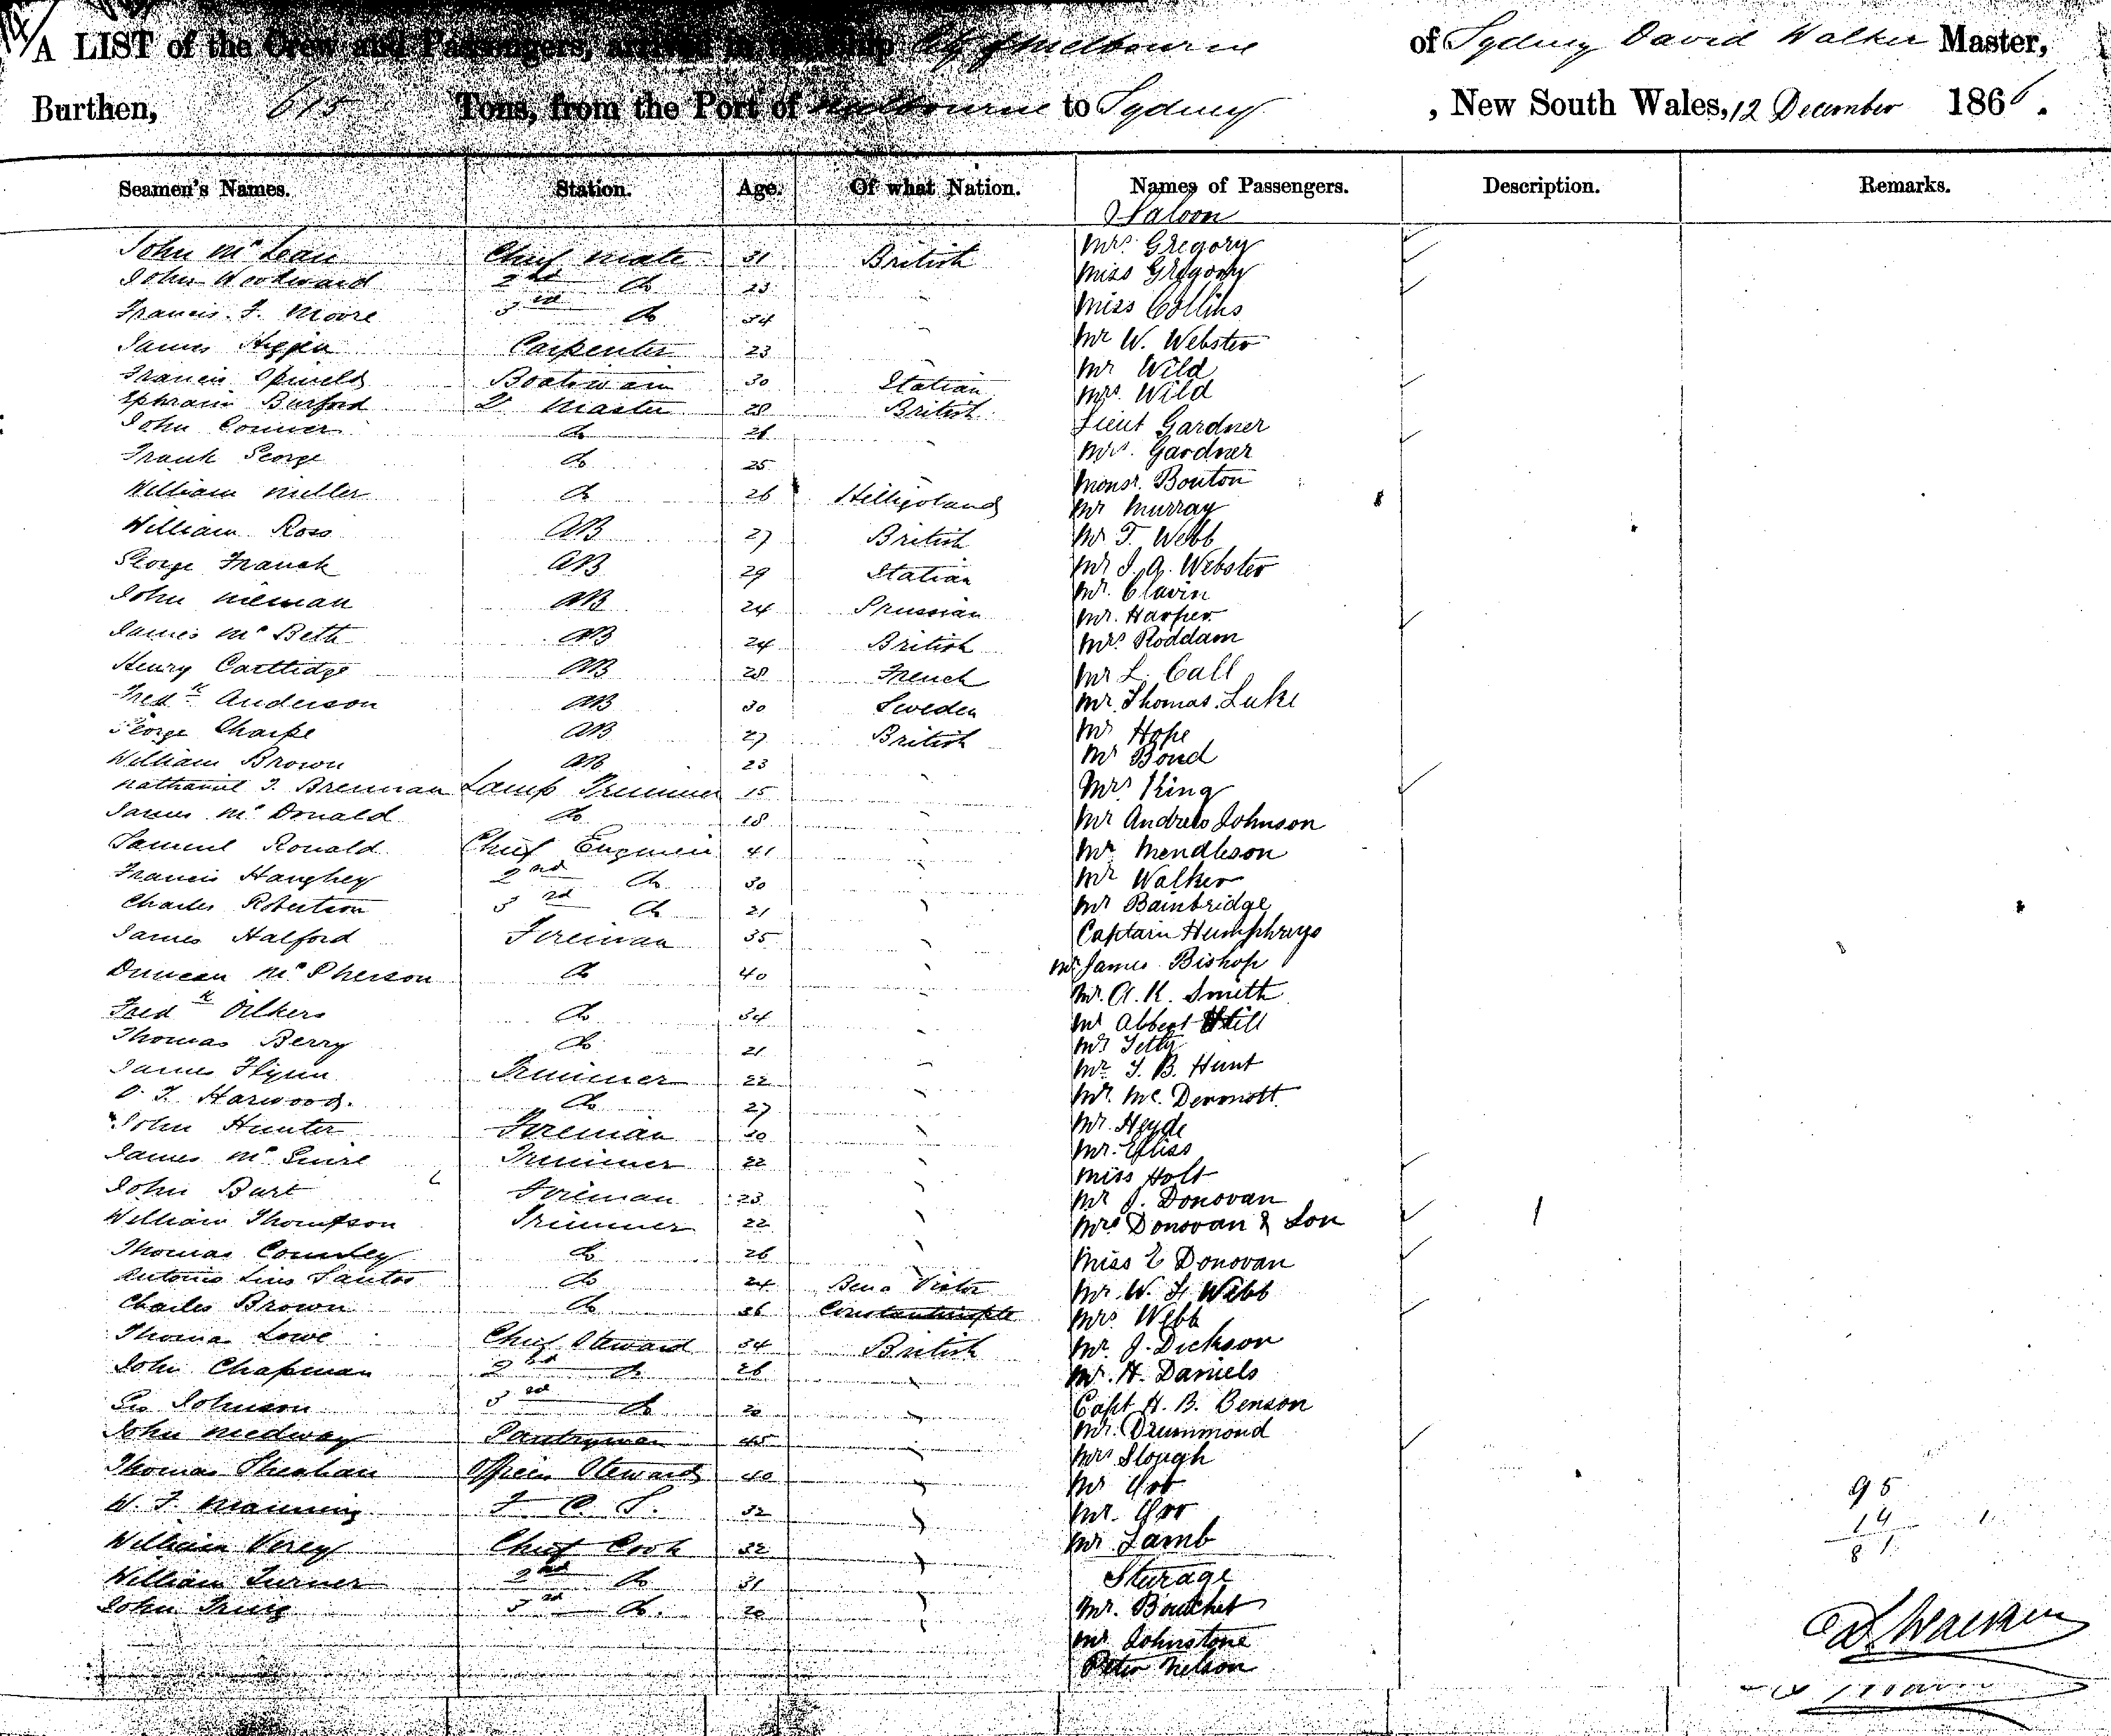 A LIST of the Crew and Passengers, arrived in the Ship City of Melbourne of Sydney David Walker Master,
Burthen, 615 Tons, from the Port of Melbourne to Sydney, New South Wales, 12 December 1866.
Seamen's Names. Station. Age. Of what Nation. Names of Passengers. Description. Remarks.
Saloon
John McLean Chief Mate 31 British Mrs Gregory
John Woodward 2nd do 23 Miss Gregory
Francis F. Moore 3rd do 34 Miss Collins
James Carpenter 23 Mr W. Webster
Francis Boatswain 30 Italian Mr Wild
Mrs. Wild
Ephraim Burford Q Master 28 British Lieut Gardner
John Conner do 26 Mrs. Gardner
Frank George do 25 Monsr. Bouton
William Miller do 26 Helligoland Mr Murray
William Ross AB 27 British Mr T. Webb
George Franck AB 29 Italian Mr J. A. Webster
Mr. Clavin
John Nieman AB 24 Prussian Mr. Harper
James McBeth AB 24 British Mrs Roddam
Henry Carttidge AB 28 French Mr L. Call
Fredk Anderson AB 30 Sweden Mr. Thomas Luke
George Sharpe AB 27 British Mr Hope
William Brown AB 23 Mr Bond
Nathaniel J. Brennan Lamp Trimmer 15 Mrs King
James McDonald do 18 Mr Andrew Johnson
Samuel Ronald Chief Engineer 41 Mr Mendleson
Francis Haughey 2nd do 30 Mr Walker
Charles Robertson 3rd do 21 Mr Bainbridge
James Halford Fireman 35 Captain Humphreys
Duncan McPherson do 40 Mr James Bishop
Mr. A. K. Smith
Fredk Ahlers do 34 Mr Albert Hill
Thomas Berry do 21 Mr Tetty
James Flynn Trimmer 22 Mr J. B. Hunt
O. J. Harwood. do 27 Mr. McDermott
John Hunter Fireman 30 Mr. Heyde
Mr. Elliss
James McGuire Trimmer 22 Miss Holt
John Burt Fireman 23 Mr J. Donovan
William Thompson Trimmer 22 Mrs Donovan & Son 1
Thomas Counley do 26 Miss E Donovan
Antonio Lino Santos do 24 Bona Vista Mr. W. H Webb
Charles Brown do 36 Constantinople Mrs Webb
Thomas Lowe Chief Steward 34 British Mr. J. Dickson
John Chapman 2nd do 26 Mr. H. Daniels
Geo Johnson 3rd do 20 Capt H. B. Benson
John Medway Pantryman 45 Mr. Drummond
Mrs Slough
Thomas Sheahan Officers Steward 40 Mr 95
W. J. Manning F. C. S. 32 Mr. 14
William Verey Chief Cook 32 Mr Lamb 81
William Turner 2nd do 31 Sturage
John 3rd do. 20 Mr. Bouchet
Mr Johnstone D. Walker
Peter Nelson